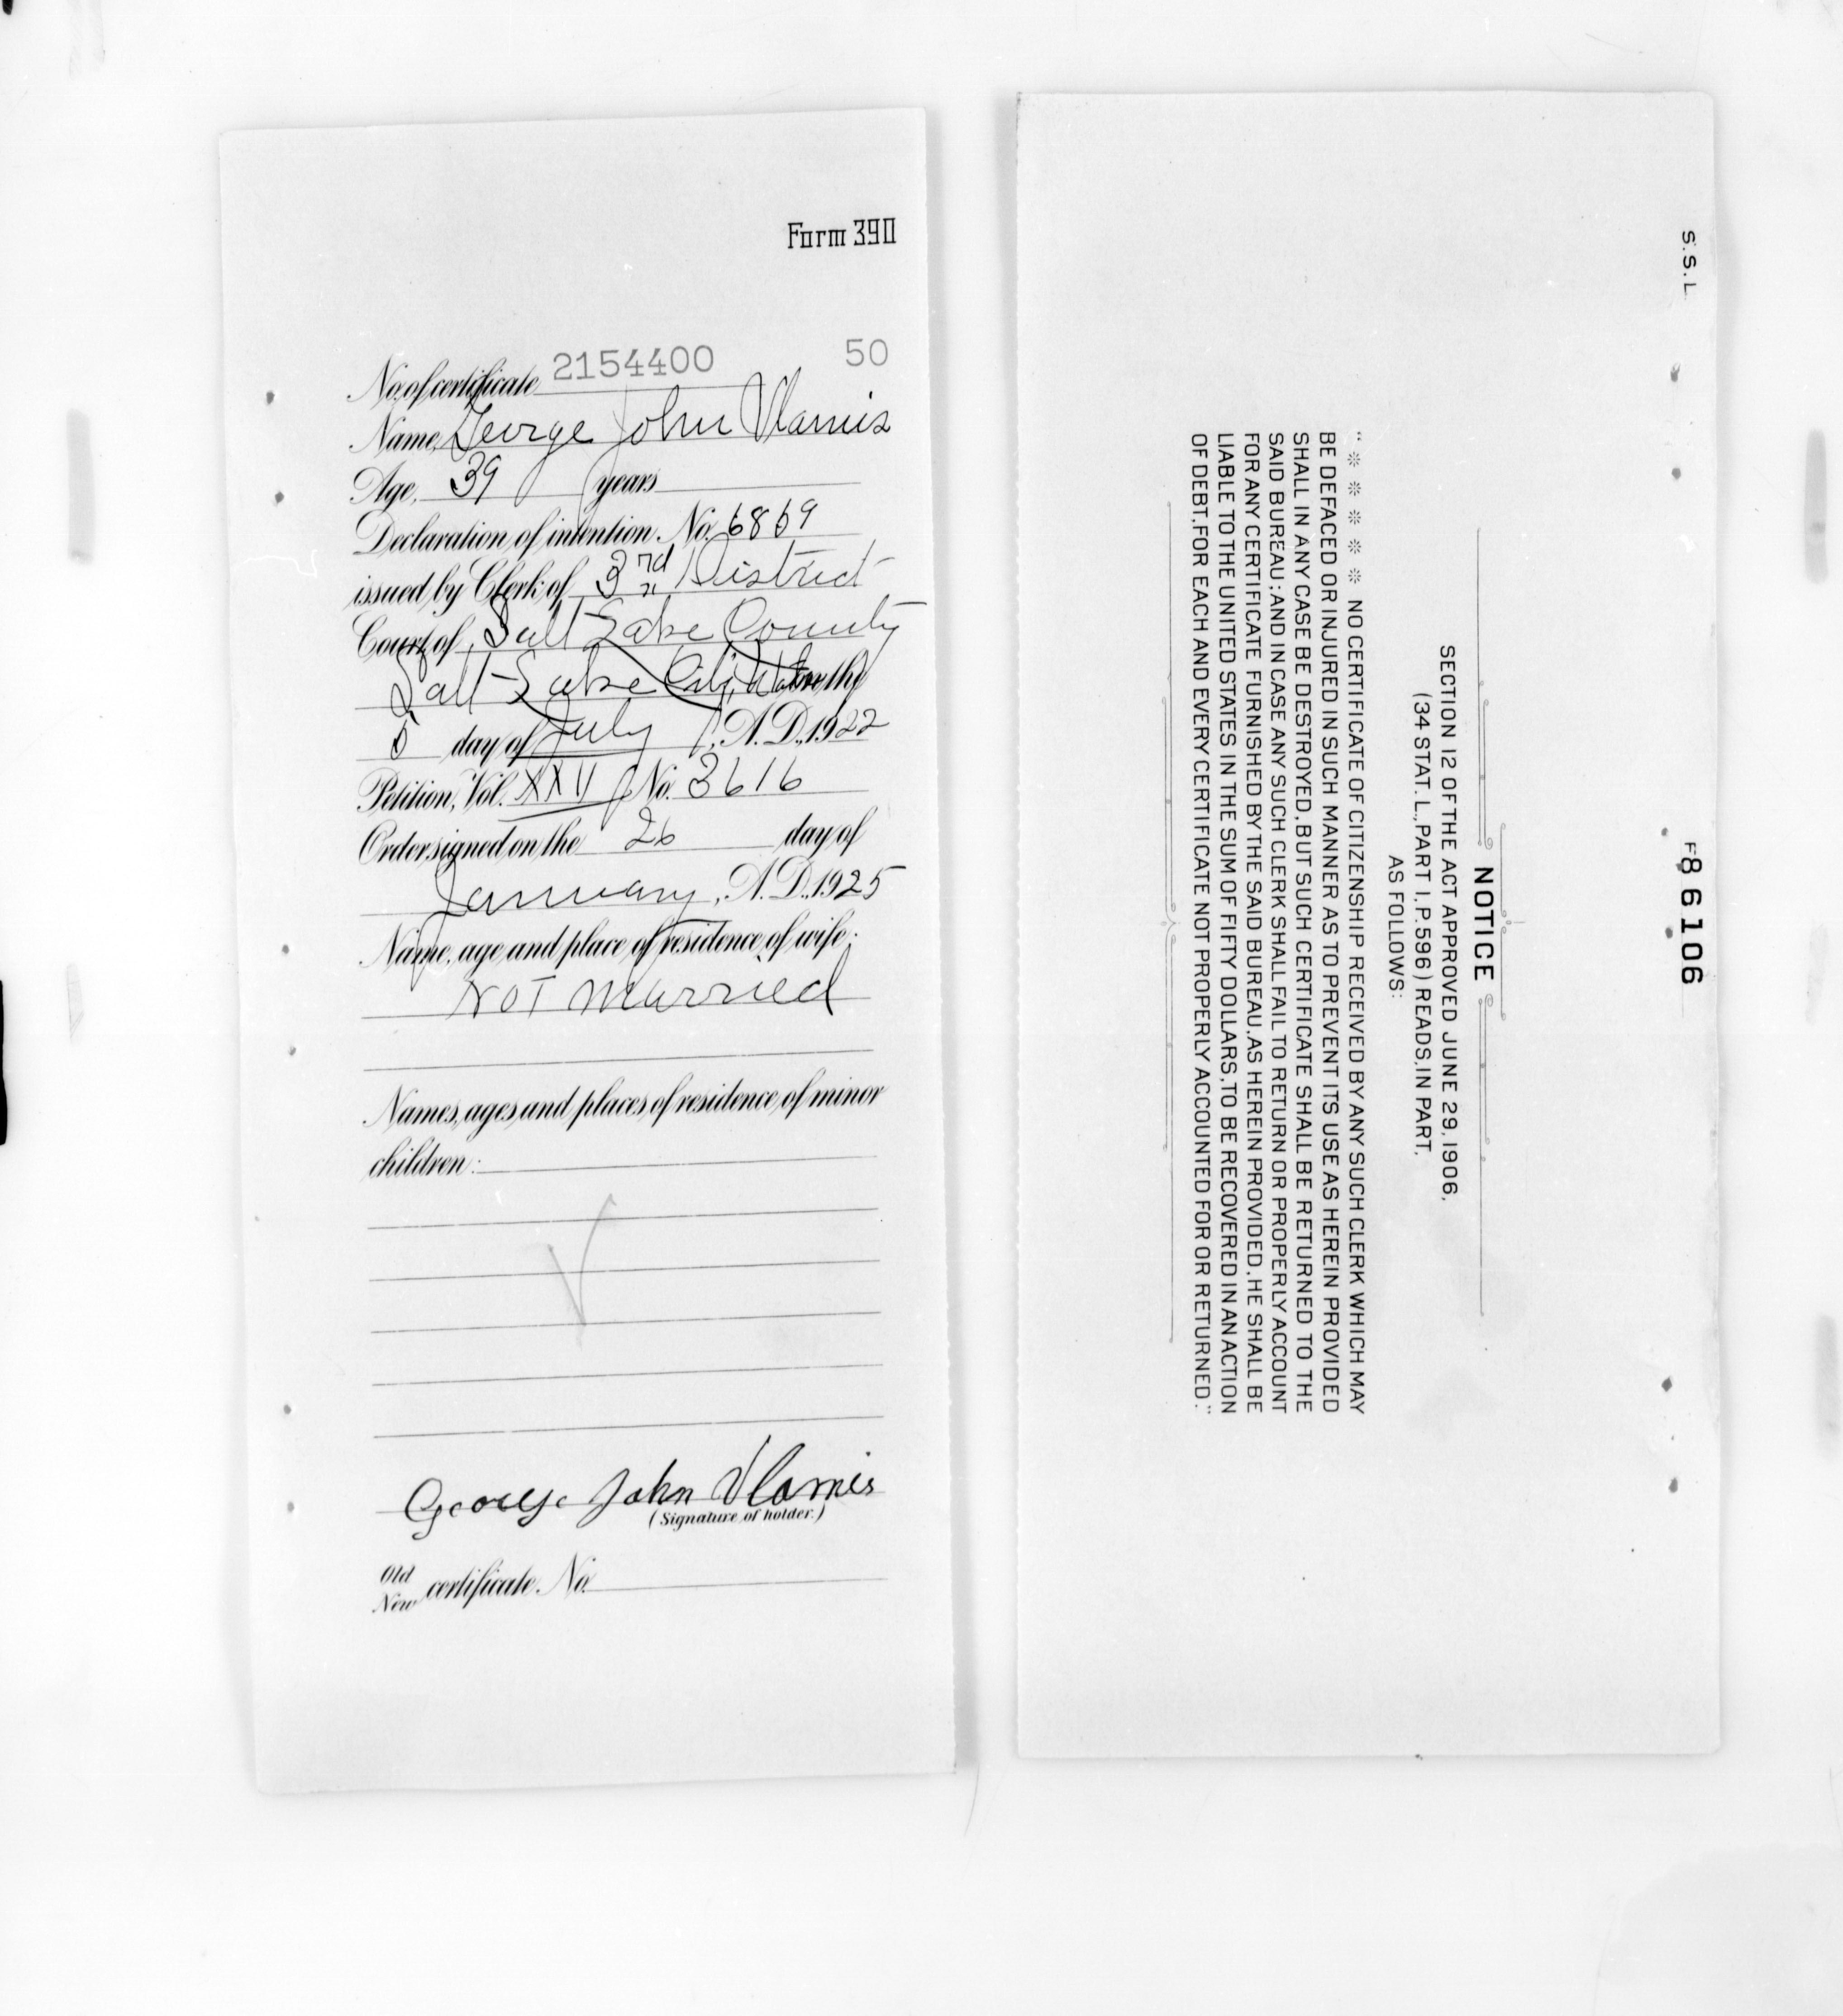 Form 390
No. of certificate 2154400 50
Name, George John Vlamis
Age, 39 years
Declaration of intention, No. 6869
issued by Clerk of 3rd District
Court of Salt Lake County
Salt Lake City, Utah on the
5 day of July, A.D., 1922
Petition, Vol. XXV No. 3616
Order signed on the 26 day of
January, A.D., 1925
Name, age and place of residence of wife:
NOT Married
Names, ages and places of residence of minor
children:
George John Vlamis
(Signature of holder.)
Old
New certificate No.
S.S.L.
F86106
NOTICE
SECTION 12 OF THE ACT APPROVED JUNE 29, 1906,
(34 STAT. L., PART I, P. 596) READS, IN PART,
AS FOLLOWS:
"* * * * * NO CERTIFICATE OF CITIZENSHIP RECEIVED BY ANY SUCH CLERK WHICH MAY
BE DEFACED OR INJURED IN SUCH MANNER AS TO PREVENT ITS USE AS HEREIN PROVIDED
SHALL IN ANY CASE BE DESTROYED, BUT SUCH CERTIFICATE SHALL BE RETURNED TO THE
SAID BUREAU; AND IN CASE ANY SUCH CLERK SHALL FAIL TO RETURN OR PROPERLY ACCOUNT
FOR ANY CERTIFICATE FURNISHED BY THE SAID BUREAU, AS HEREIN PROVIDED, HE SHALL BE
LIABLE TO THE UNITED STATES IN THE SUM OF FIFTY DOLLARS, TO BE RECOVERED IN AN ACTION
OF DEBT, FOR EACH AND EVERY CERTIFICATE NOT PROPERLY ACCOUNTED FOR OR RETURNED."